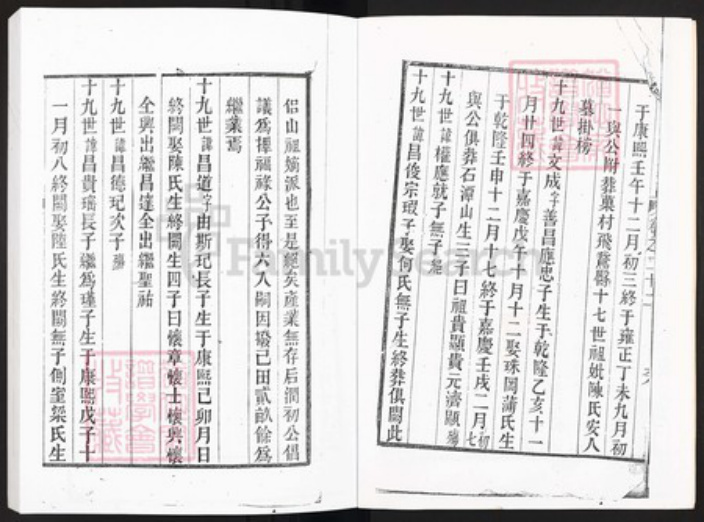 于康熙壬午十二月初三終于雍正丁未九月初
一與公附葬菓村飛鵞縣十七世祖妣陳氏安人
墓掛榜
十九世諱文成字善昌應忠子生于乾隆乙亥十一
月廿四終于嘉慶戊午十月十二娶珠岡蒲氏生
于乾隆壬申十二月十七終于嘉慶壬戌二月初七
與公俱葬石潭山生三子曰祖貴顯貴元濟顯殤
十九世諱權應就子無子
十九世諱昌俊宗瑕子娶何氏無子生終葬俱闕此
侣山祖嫡派也至是絕矣產業無存后潤初公倡
議爲擇福祿公子得六人嗣因撥己田貳畝餘爲
繼業焉
十九世諱昌道字由斯玘長子生于康熙己卯月日
終闕娶陳氏生終闕生四子曰懷章懷士懷興懷
全興出繼昌達全出繼聖祐
十九世諱昌德玘次子殤
十九世諱昌貴瑤長子繼爲瑾子生于康熙戊子十
一月初八終闕娶陸氏生終闕無子側室梁氏生
FamilySearch